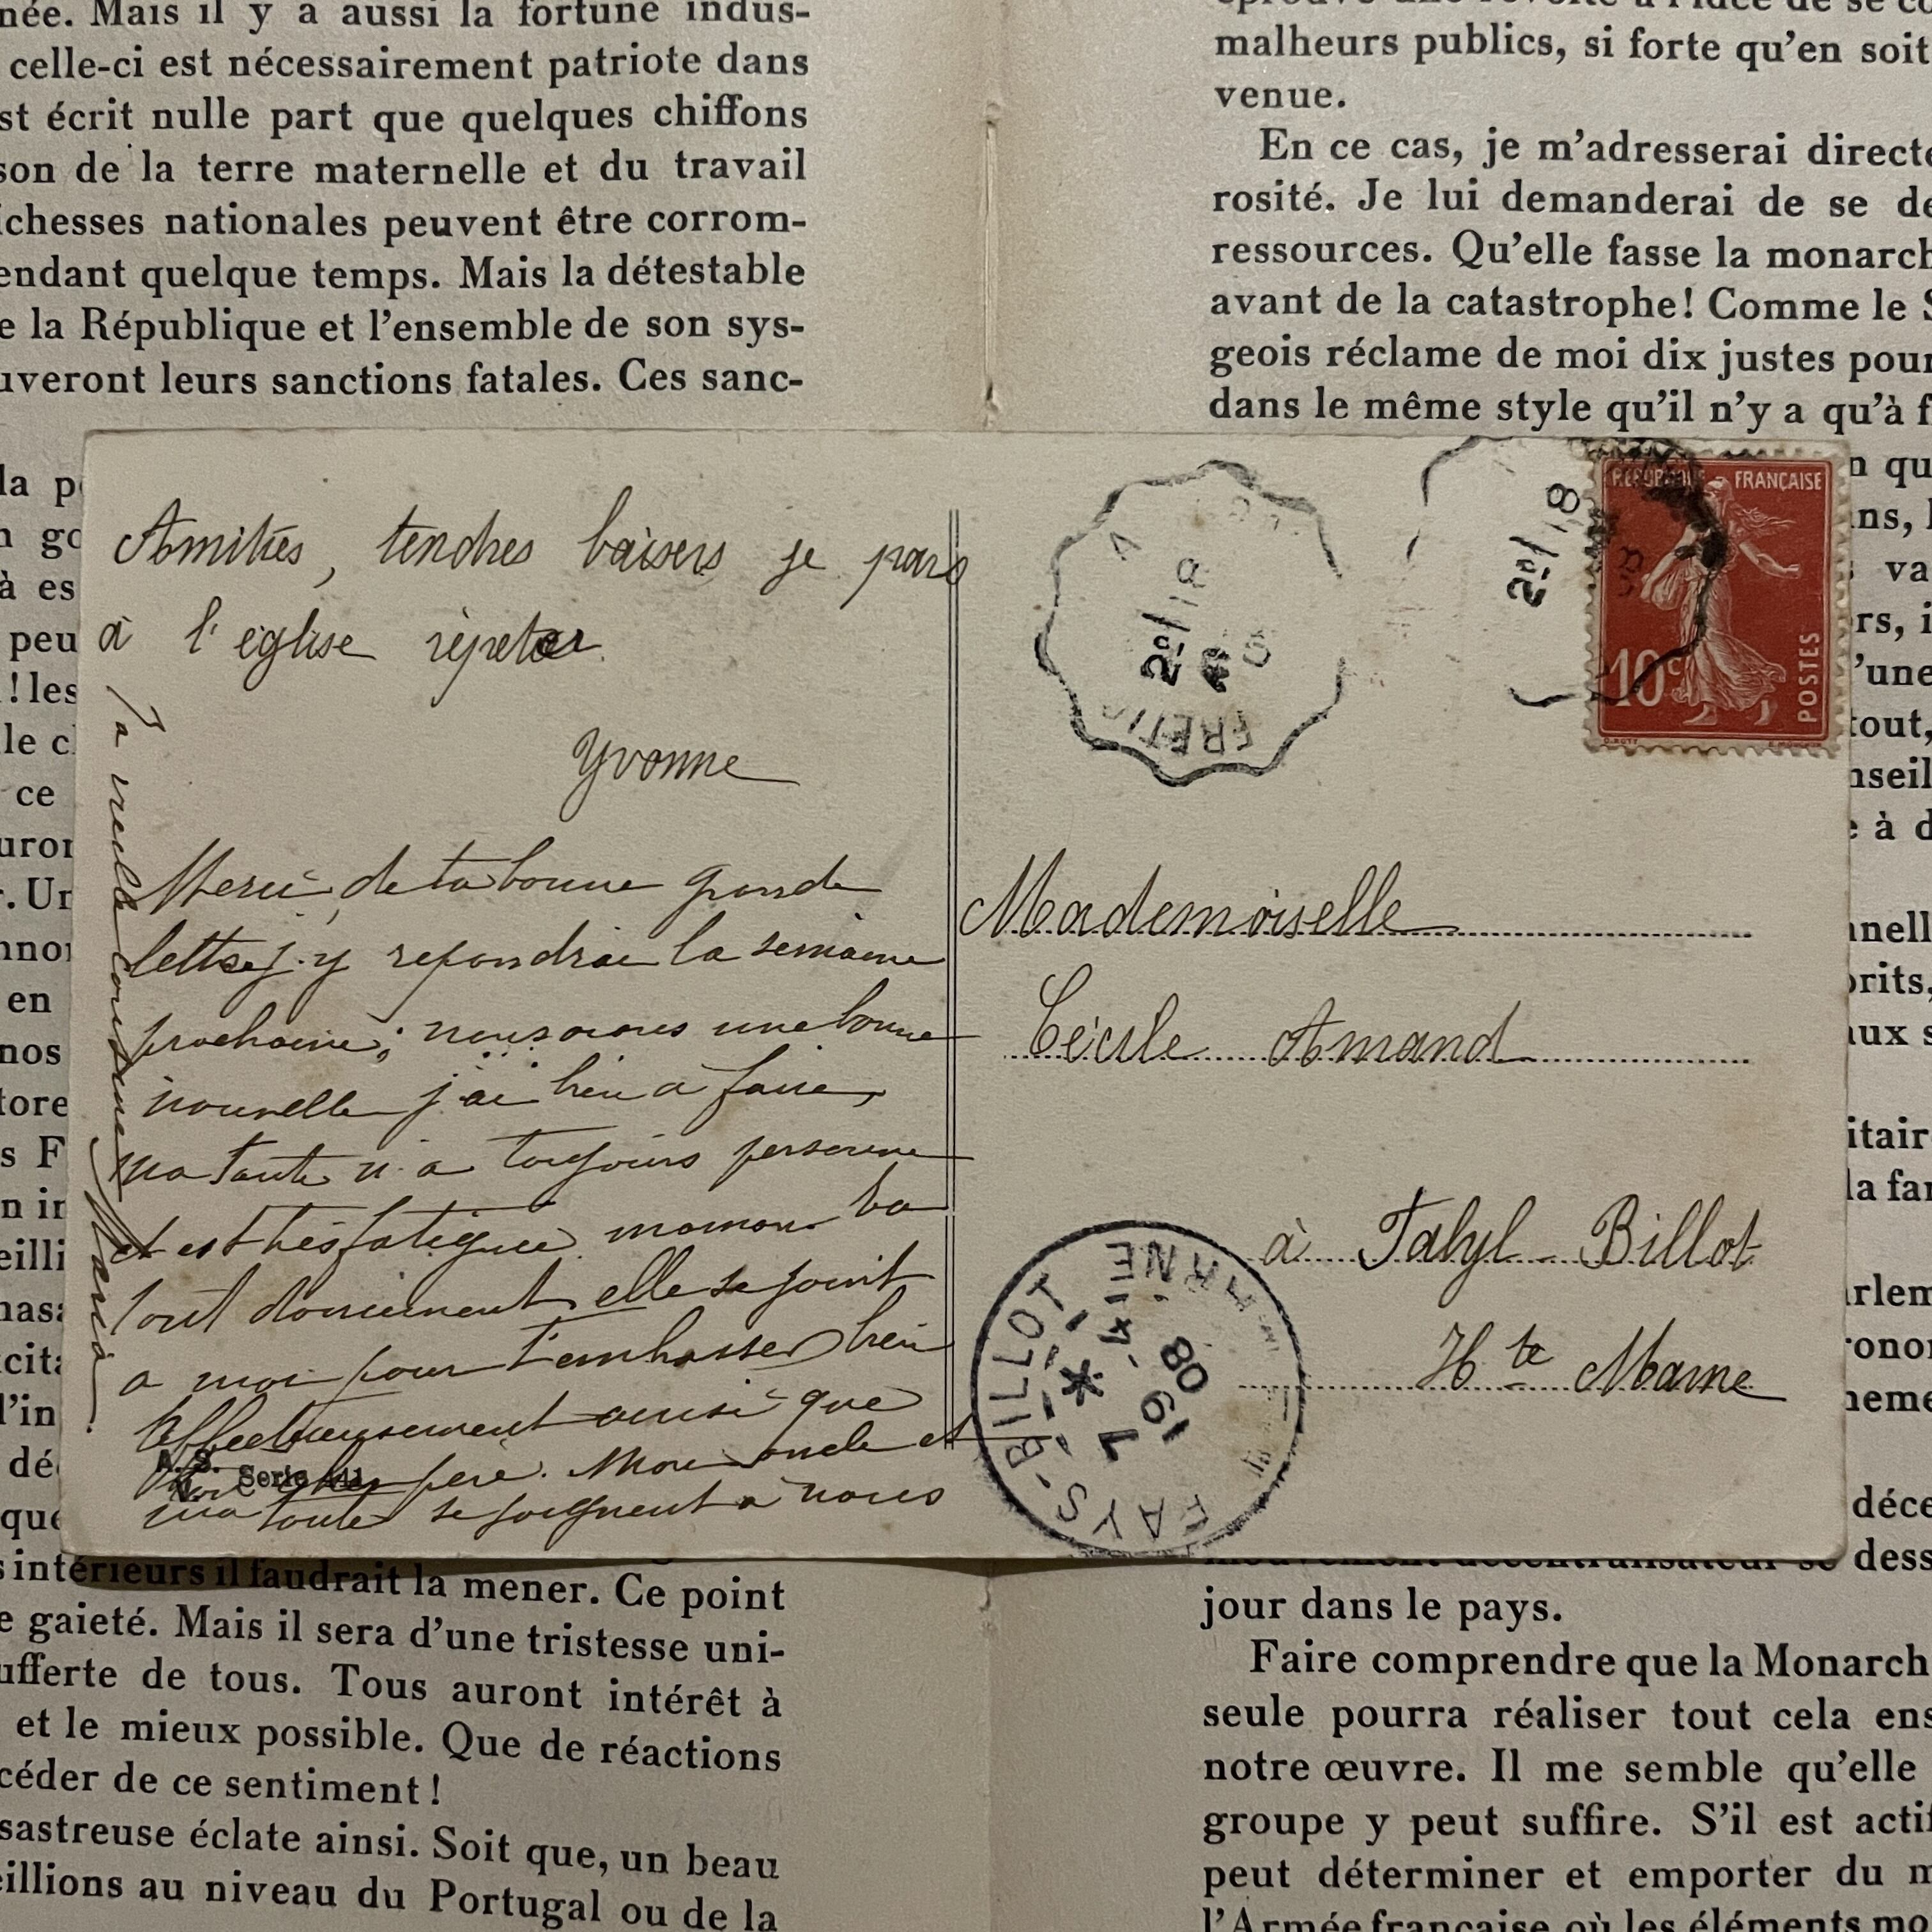 née. Mais il y a aussi la fortune indus-
celle-ci est nécessairement patriote dans
st écrit nulle part que quelques chiffons
son de la terre maternelle et du travail
ichesses nationales peuvent être corrom-
endant quelque temps. Mais la détestable
e la République et l'ensemble de son sys-
uveront leurs sanctions fatales. Ces sanc-
malheurs publics, si forte qu'en soit
venue.
En ce cas, je m'adresserai directe
rosité. Je lui demanderai de se de
ressources. Qu'elle fasse la monarch
avant de la catastrophe! Comme le S
geois réclame de moi dix justes pour
dans le même style qu'il n'y a qu'à f
Amitiés, tendres baisers je pars
à l'église répeter
Yvonne
Merci de ta bonne grande
lettre j'y repondrai la semaine
prochaine; nous avons une bonne
nouvelle j'ai bien à faire,
ma tante n'a toujours personne
et est très fatiguée maman va
tout doucement elle se joint
a moi pour t'embrasser bien
affectueusement ainsi que
père. Mon oncle et
ma tante se joignent à nous
Ta vieille cousine
Maria
A. S.
Serie 141
RÉPUBLIQUE FRANÇAISE
10c
POSTES
Mademoiselle
Cécile Amand
à Fahyl-Billot
Hte Marne
FAYS-BILLOT
Hte MARNE
7
1-4
1908
intérieurs il faudrait la mener. Ce point
e gaieté. Mais il sera d'une tristesse uni-
ufferte de tous. Tous auront intérêt à
et le mieux possible. Que de réactions
céder de ce sentiment!
sastreuse éclate ainsi. Soit que, un beau
eillions au niveau du Portugal ou de la
mouvement décentralisateur se dess
jour dans le pays.
Faire comprendre que la Monarch
seule pourra réaliser tout cela ens
notre œuvre. Il me semble qu'elle
groupe y peut suffire. S'il est acti
peut déterminer et emporter du m
l'Armée française où les éléments mo